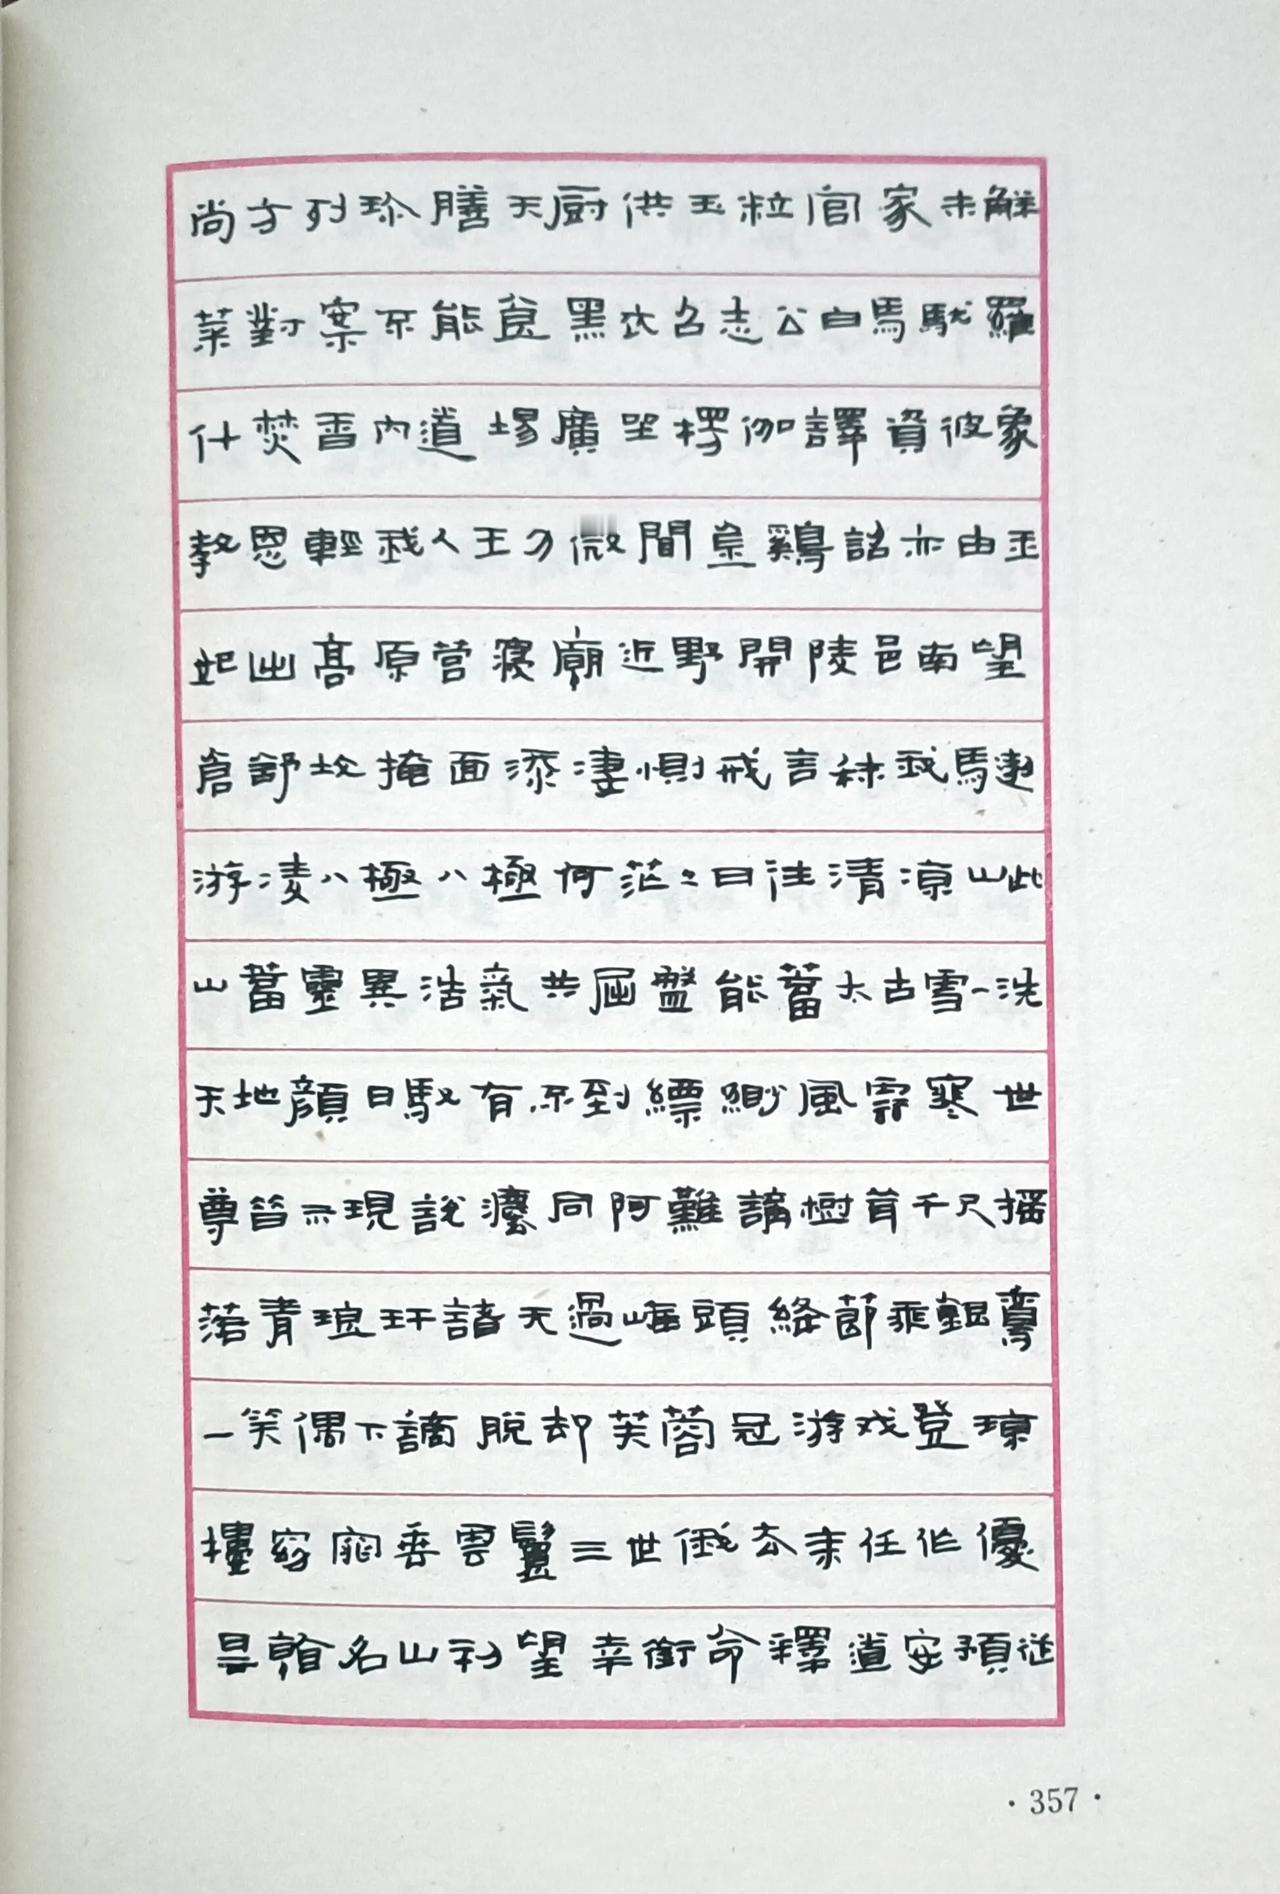 尚方列珍膳天厨供玉粒官家未解
菜對案不能食黑衣召志公白馬馱羅
什焚香內道場廣坐楞伽譯資彼象
教恩輕我人王力微聞金鷄詔亦由玉
妃出高原営寝廟近野開陵邑南望
倉舒坟掩面添凄惻戒言秣我馬遨
游凌八極八極何茫々曰往清凉山此
山蓄靈異浩氣共屈盤能蓄太古雪一洗
天地顔日馭有不到縹緲風雲寒世
尊昔示現說灋同阿難講樹茸千尺摇
落青琅玕諸天過峰頭絳節乘銀鸞
一笑偶下謫脫却芙蓉冠游戏登瓊
樓窈窕垂雲鬟三世俄去来任作優
曇翰名山初望幸銜命釋道安預從